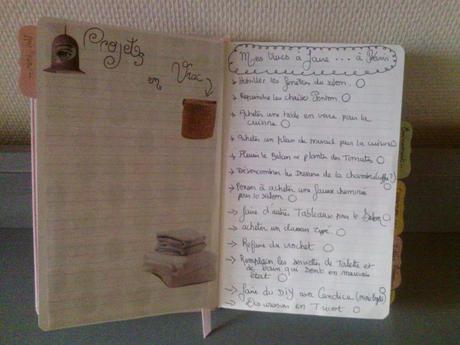 Projets
en
Vrac
Mes trucs à faire ... à Paris
→ Habiller les fenêtres du salon.
→ Repeindre les chaises Fenton
→ Acheter une table en verre pour la
cuisine
→ Acheter un plan de travail pour la cuisine
→ Fleurir le Balcon et planter des Tomates
→ Désencombrer les dessous de la chambre
→ Penser à acheter une fausse cheminée
pour le salon
→ faire d'autres Tableaux pour le salon
→ acheter un dressoir
→ Refaire du crochet
→ Remplacer les serviettes de Toilette et
de bain qui sont en mauvais
état
→ faire du DIY avec Candice
→ Des in Tricot